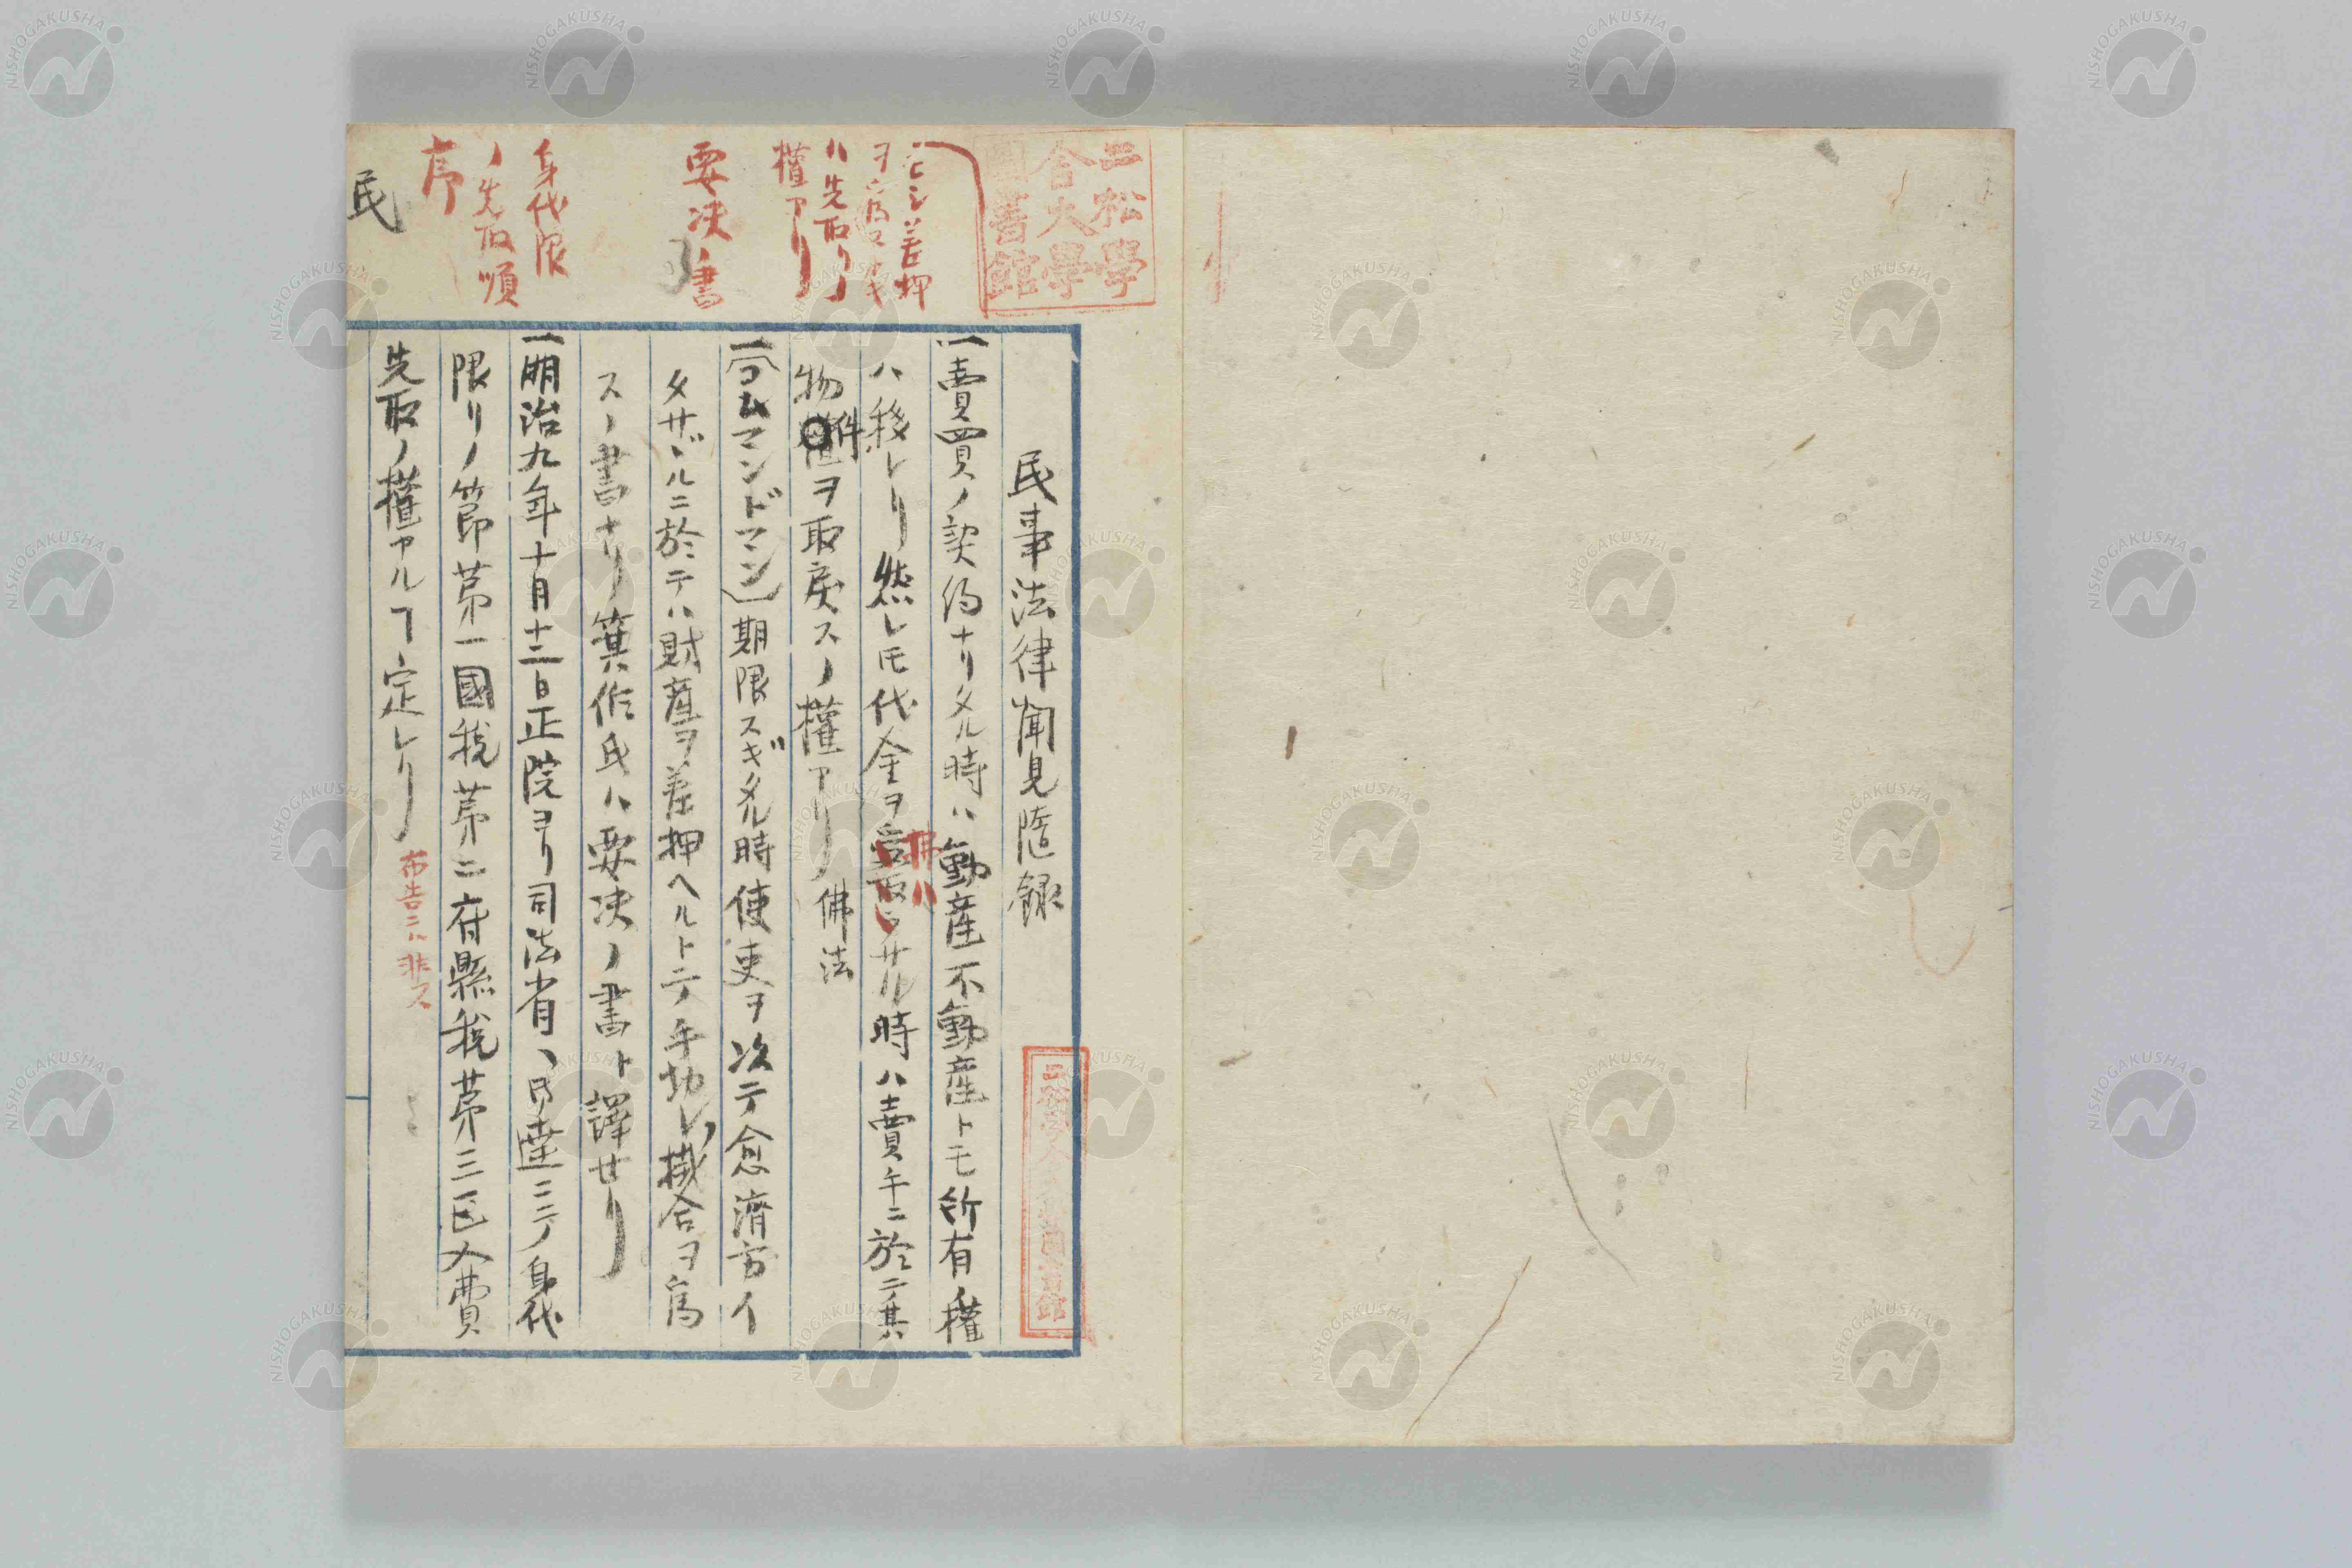 二松學
舍大學
圖書館
民事法律聞見隨録
一賣買ノ契約ナリタル時ハ動産不動産トモ所有ノ權
ハ移レリ然レ圧代金ヲ受取ラサル時ハ賣手ニ於テ其
拂ハ
物件ヲ取戻スノ權アリ 佛法
一(コムマンドマン)期限スギタル時使吏ヲ次テ愈濟方イ
タサヾルニ於テハ財産ヲ差押ヘルトテ手切レ掛合ヲ爲
スノ書ナリ箕作氏ハ要决ノ書ト譯せリ
一明治九年十月十二日正院ヨリ司法省ヘノ達ニテ身代
限リノ節苐一國税苐二府縣税苐三区入費
先取ノ權アルヿ定レリ
布告ニハ非ス
モシ差押
ハ先取リノ
權アリ
要决ノ書
身代限
ノ先取順
序
民
NISHOGAKUSHA